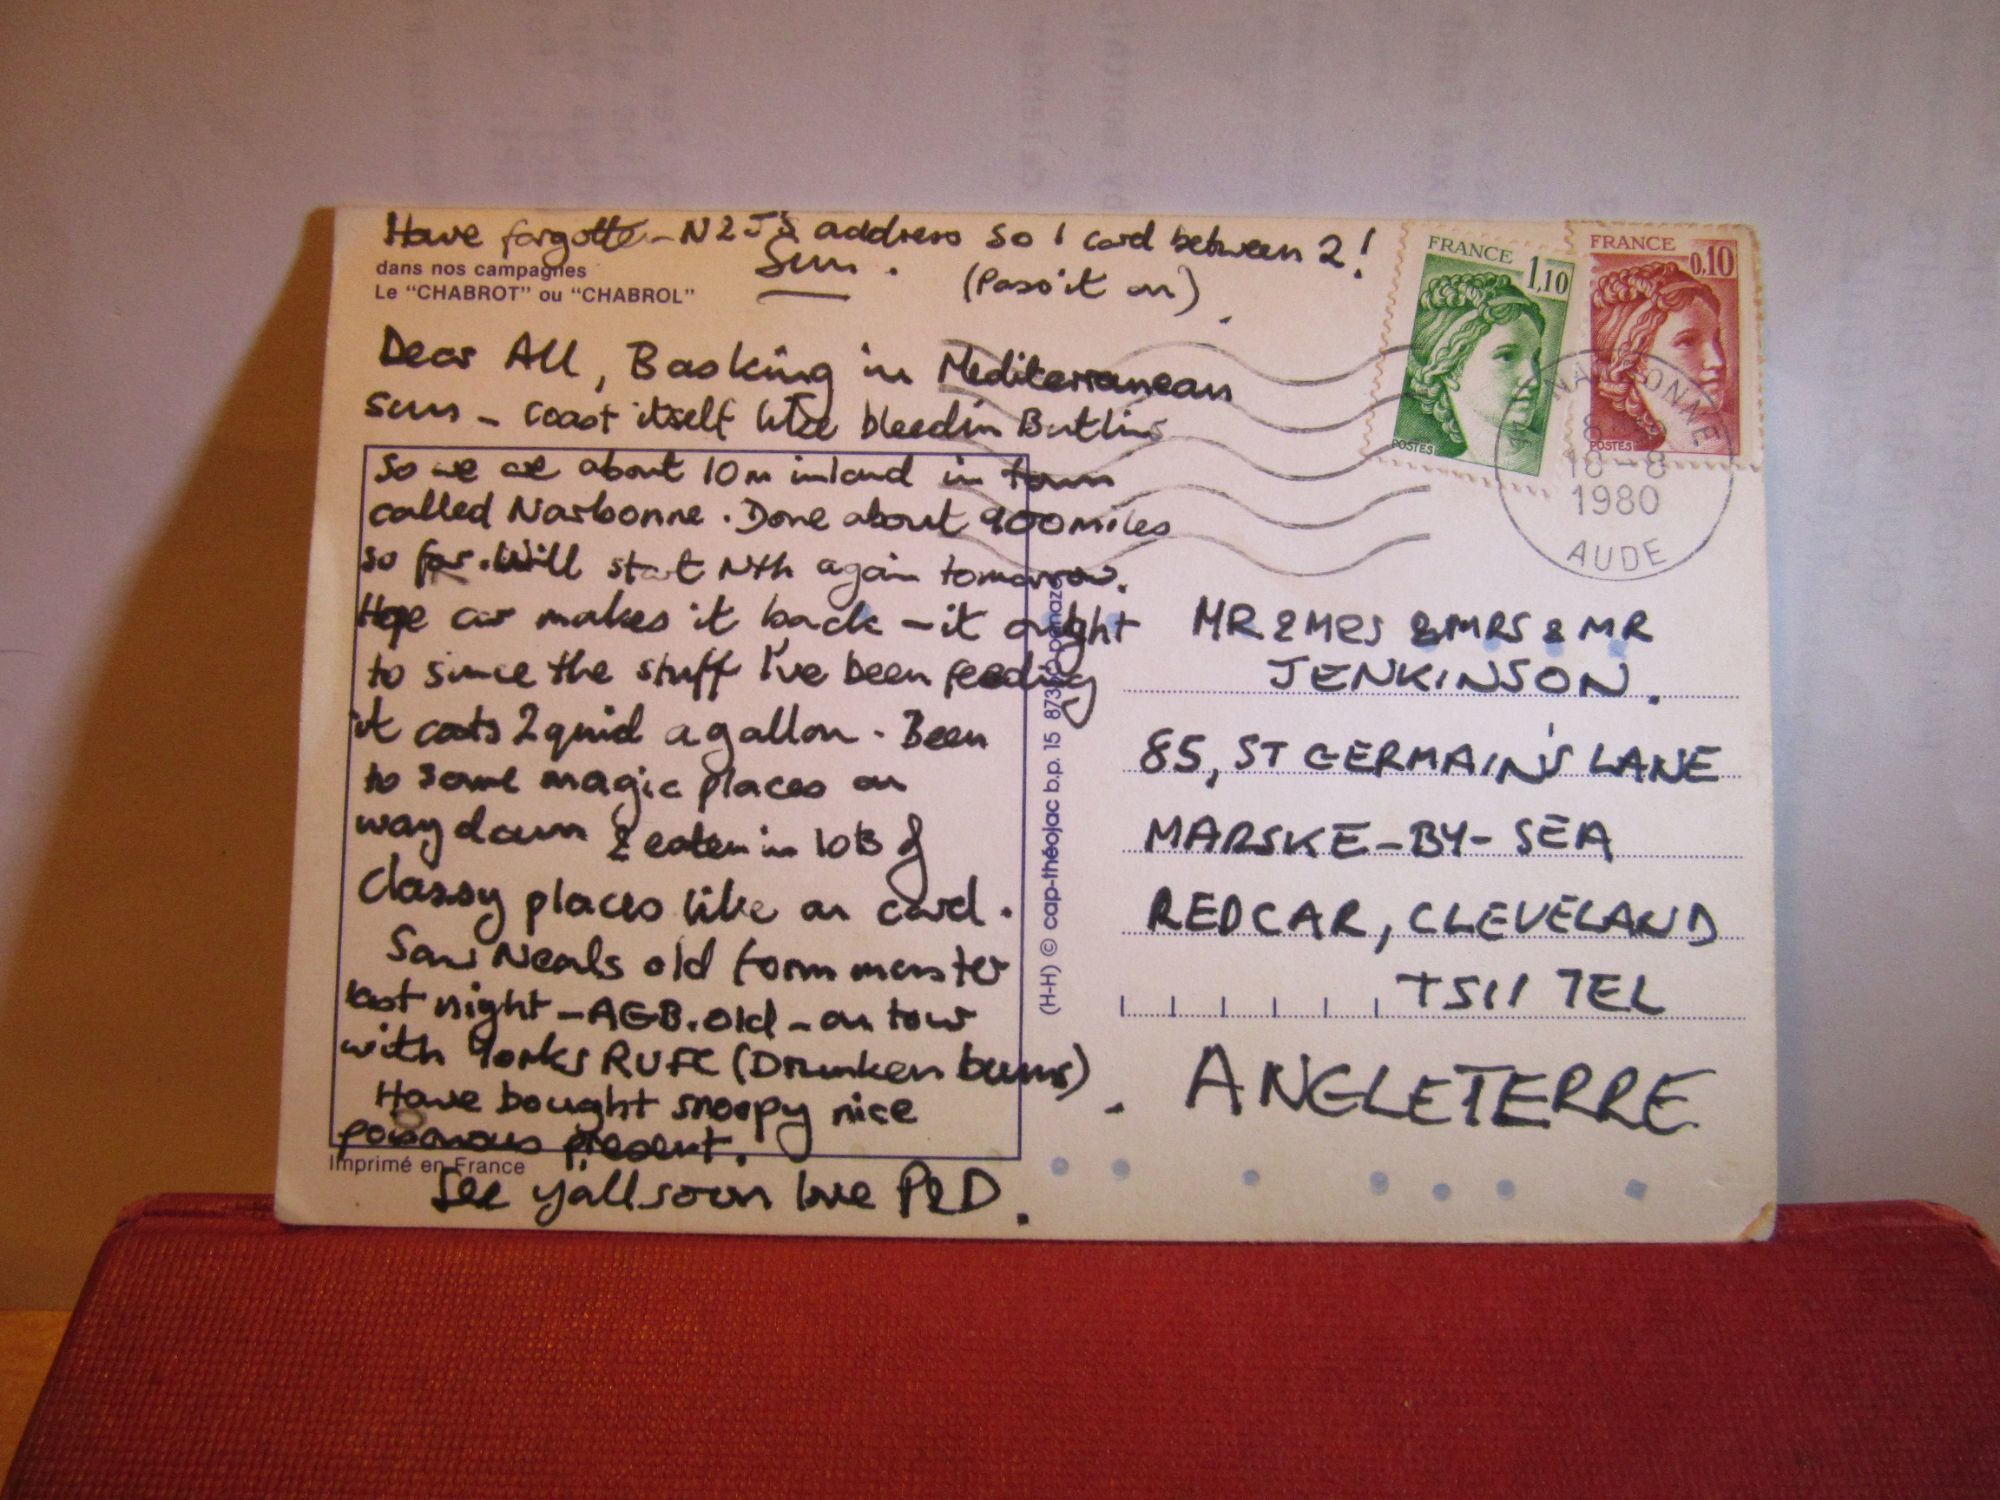 Have forgotten N2J's address so 1 card between 2!
Sun.
(Pass it on).
dans nos campagnes
Le "CHABROT" ou "CHABROL"
Dear All, Basking in Mediterranean
sun - coast itself like bleedin Butlins
so we are about 10m inland in town
called Narbonne. Done about 900 miles
so far. Will start Nth again tomorrow.
Hope car makes it back - it ought
to since the stuff I've been feeding
it costs 2 quid a gallon. Been
to some magic places on
way down & eaten in lots of
classy places like on card.
Saw Neals old form master
last night - AGB. old - on tour
with Yorks RUFC (Drunken bums)
Have bought snoopy nice
poisonous present.
See y'all soon love P&D.
Imprimé en France
(H-H) © cap-théojac b.p. 15 panazol
FRANCE 1,10
POSTES
FRANCE 0,10
POSTES
NARBONNE
18-8
1980
AUDE
MR & MRS & MRS & MR
JENKINSON.
85, ST GERMAIN'S LANE
MARSKE-BY-SEA
REDCAR, CLEVELAND
TS11 7EL
ANGLETERRE